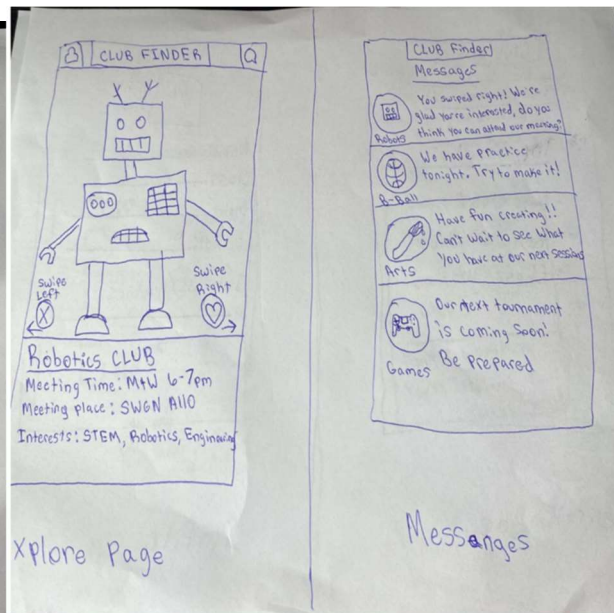 CLUB FINDER
Swipe
Left
X
Swipe
Right
Robotics CLUB
Meeting Time: M+W 6-7pm
Meeting place: SWGN A110
Interests: STEM, Robotics, Engineering
Xplore Page
CLUB Finder
Messages
You swiped right! We're
glad you're interested, do you
think you can attend our meeting?
Robots
We have practice
tonight. Try to make it!
B-Ball
Have fun creating!!
Can't wait to see what
You have at our next session
Arts
Our next tournament
is coming soon!
Be Prepared
Games
Messanges